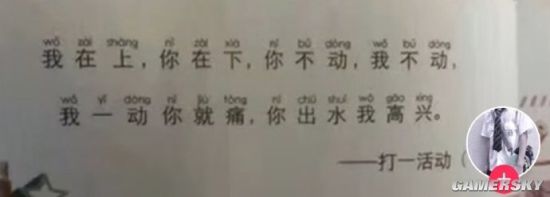 wǒ zài shàng nǐ zài xià nǐ bú dòng wǒ bú dòng
我在上，你在下，你不动，我不动，
wǒ yí dòng nǐ jiù tòng nǐ chū shuǐ wǒ gāo xìng
我一动你就痛，你出水我高兴。
——打一活动（
GAMERSKY